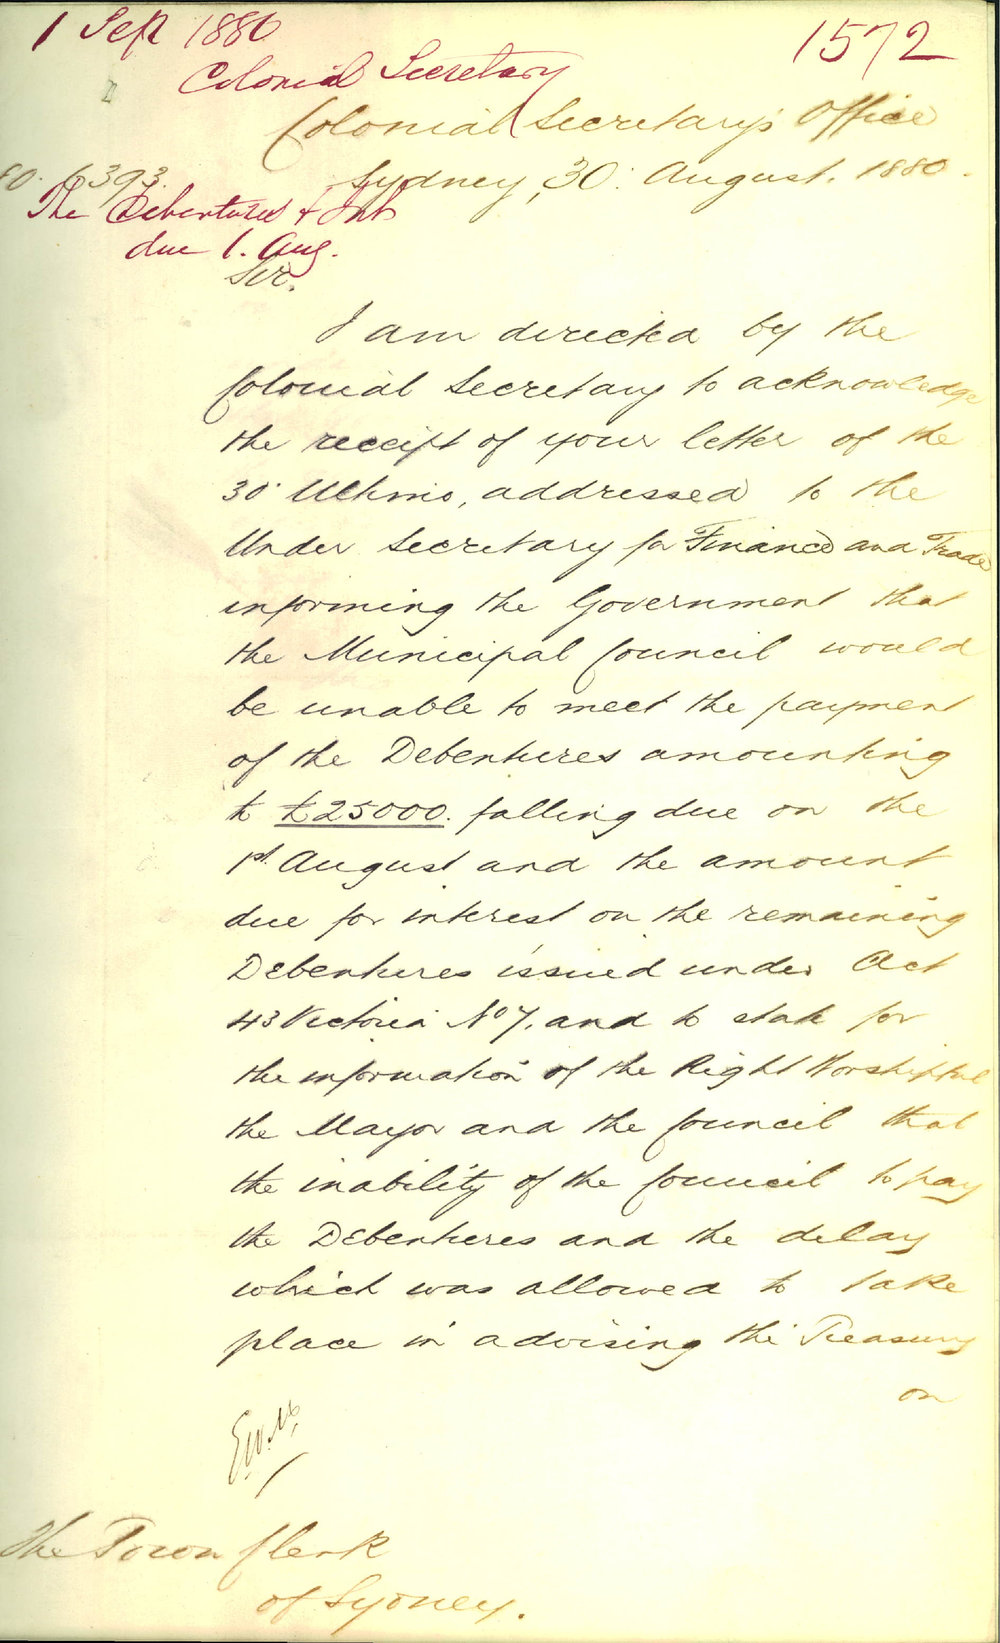 1 Sept 1880
1572
Colonial Secretary
Colonial Secretary's Office
80. 6393.
Sydney, 30. August. 1880.
The Debentures & Int
due 1. Aug.
Sir.
I am directed by the
Colonial Secretary to acknowledge
the receipt of your letter of the
30' Ultimo, addressed to the
Under Secretary for Finance and Trade
informing the Government that
the Municipal Council would
be unable to meet the payment
of the Debentures amounting
to £25000. falling due on the
1st. August and the amount
due for interest on the remaining
Debentures issued under Act
43 Victoria No 7, and to state for
the information of the Right Worshipful
the Mayor and the Council that
the inability of the Council to pay
the Debentures and the delay
which was allowed to take
place in advising the Treasury
on
The Town Clerk
of Sydney.